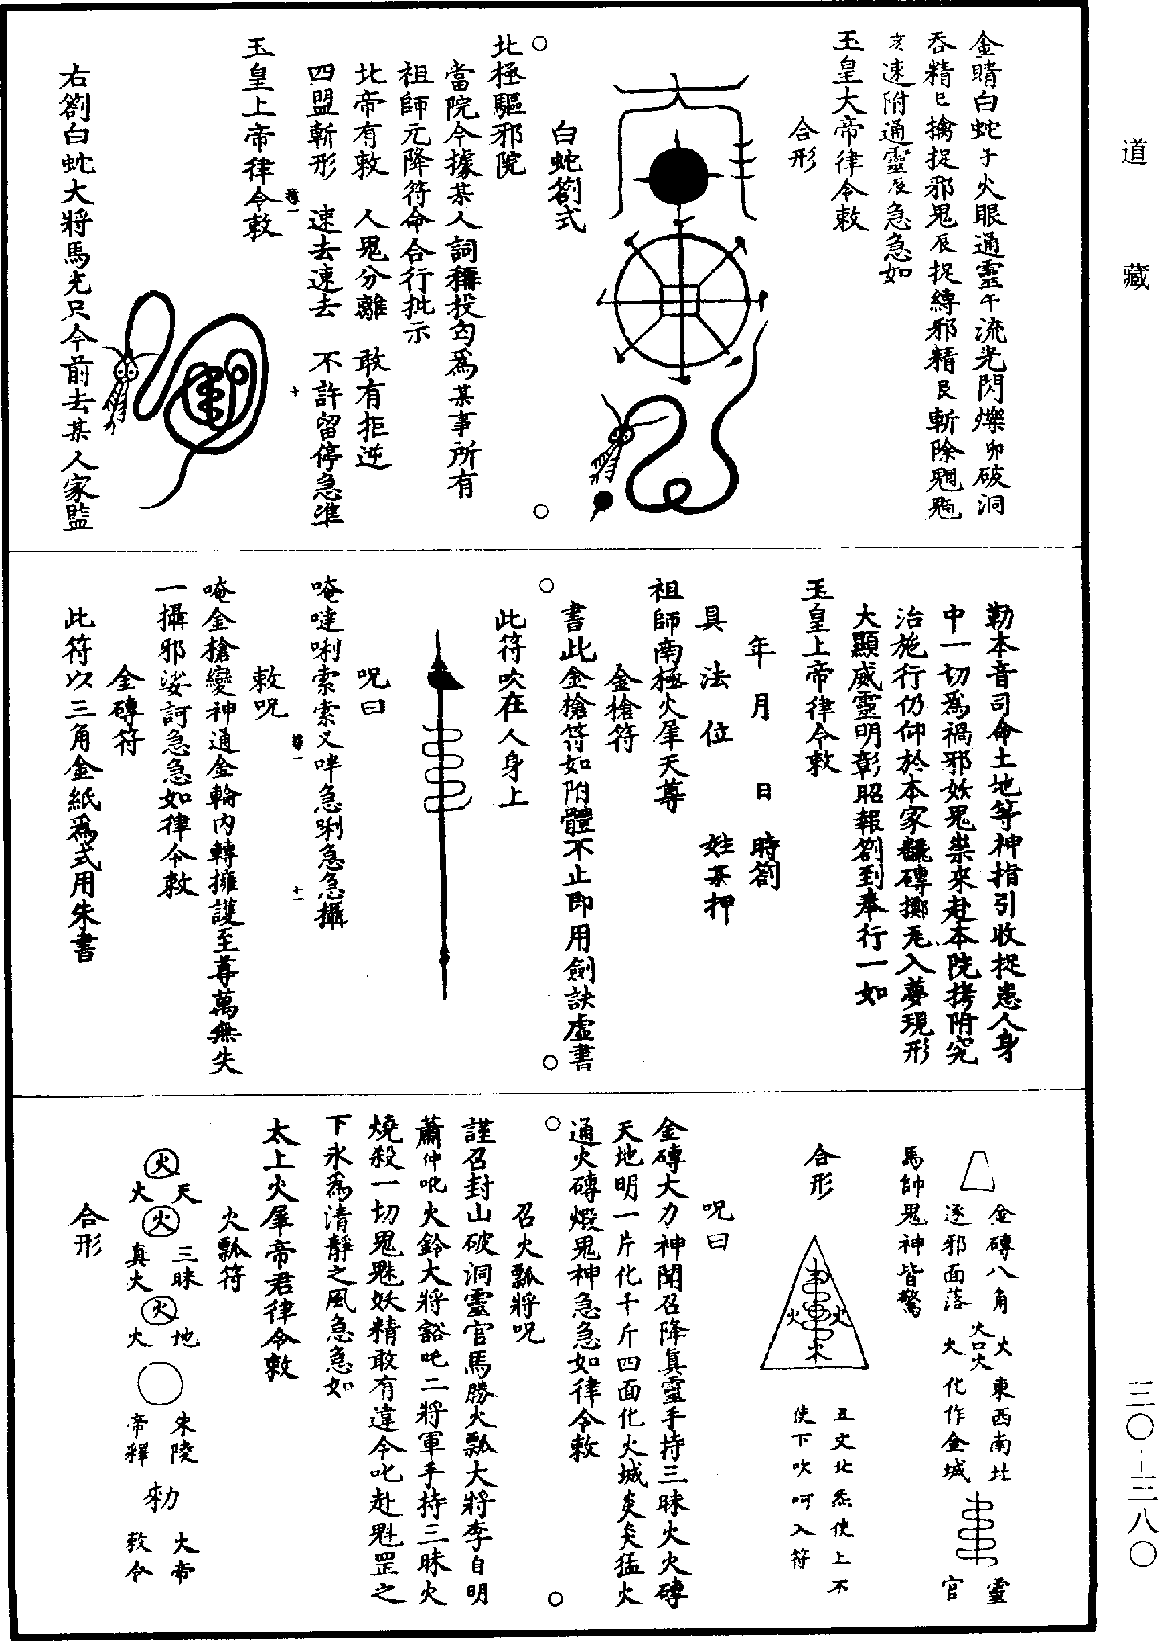 道藏
金睛白蛇子火眼通靈午流光閃爍卯破洞
吞精巳擒捉邪鬼辰捉縛邪精艮斬除魍魎
亥速附通靈辰急急如
玉皇大帝律令敕
合形
白蛇劄式
北極驅邪院
當院今據某人詞稱投勾爲某事所有
祖師元降符命合行批示
北帝有敕 人鬼分離 敢有拒逆
四盟斬形 速去速去 不許留停急準
玉皇上帝律令敕
右劄白蛇大將馬充只今前去某人家監
勒本音司命土地等神指引收捉患人身
中一切爲禍邪妖鬼祟來赴本院拷附究
治施行仍仰於本家飜磚擲瓦入夢現形
大顯威靈明彰昭報劄到奉行一如
玉皇上帝律令敕
年 月 日 時劄
具法位 姓某押
祖師南極火犀天尊
金槍符
書此金槍符如附體不止即用劍訣虛書
此符吹在人身上
呪曰
唵噠唎索索叉吽急唎急急攝
敕呪
唵金槍變神通金輪內轉擁護至尊萬無失
一攝邪娑訶急急如律令敕
金磚符
此符以三角金紙爲式用朱書
金磚八角 火 東西南北 靈
火口火
逐邪面落 火 化作金城 官
馬帥鬼神皆驚
合形
五丈北炁使上不
使下吹呵入符
呪曰
金磚大力神聞召降眞靈手持三昧火火磚
天地明一片化千斤四面化火城炎炎猛火
通火磚煅鬼神急急如律令敕
召火瓢將呪
謹召封山破洞靈官馬勝火瓢大將李自明
蕭仲吪火鈴大將豁吒二將軍手持三昧火
燒殺一切鬼魁妖精敢有違令叱赴魁罡之
下永爲清靜之風急急如
太上火犀帝君律令敕
火瓢符
火
天火
火
三昧真火
火
地火
朱陵帝釋
勑
大帝敕令
合形
三〇-三八〇